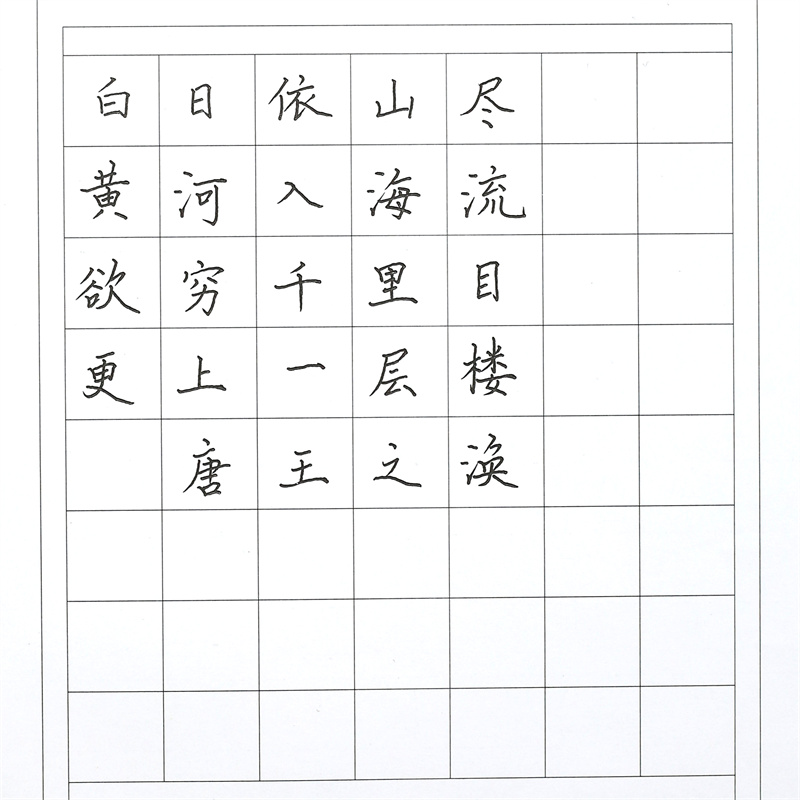 白日依山尽
黄河入海流
欲穷千里目
更上一层楼
唐王之涣